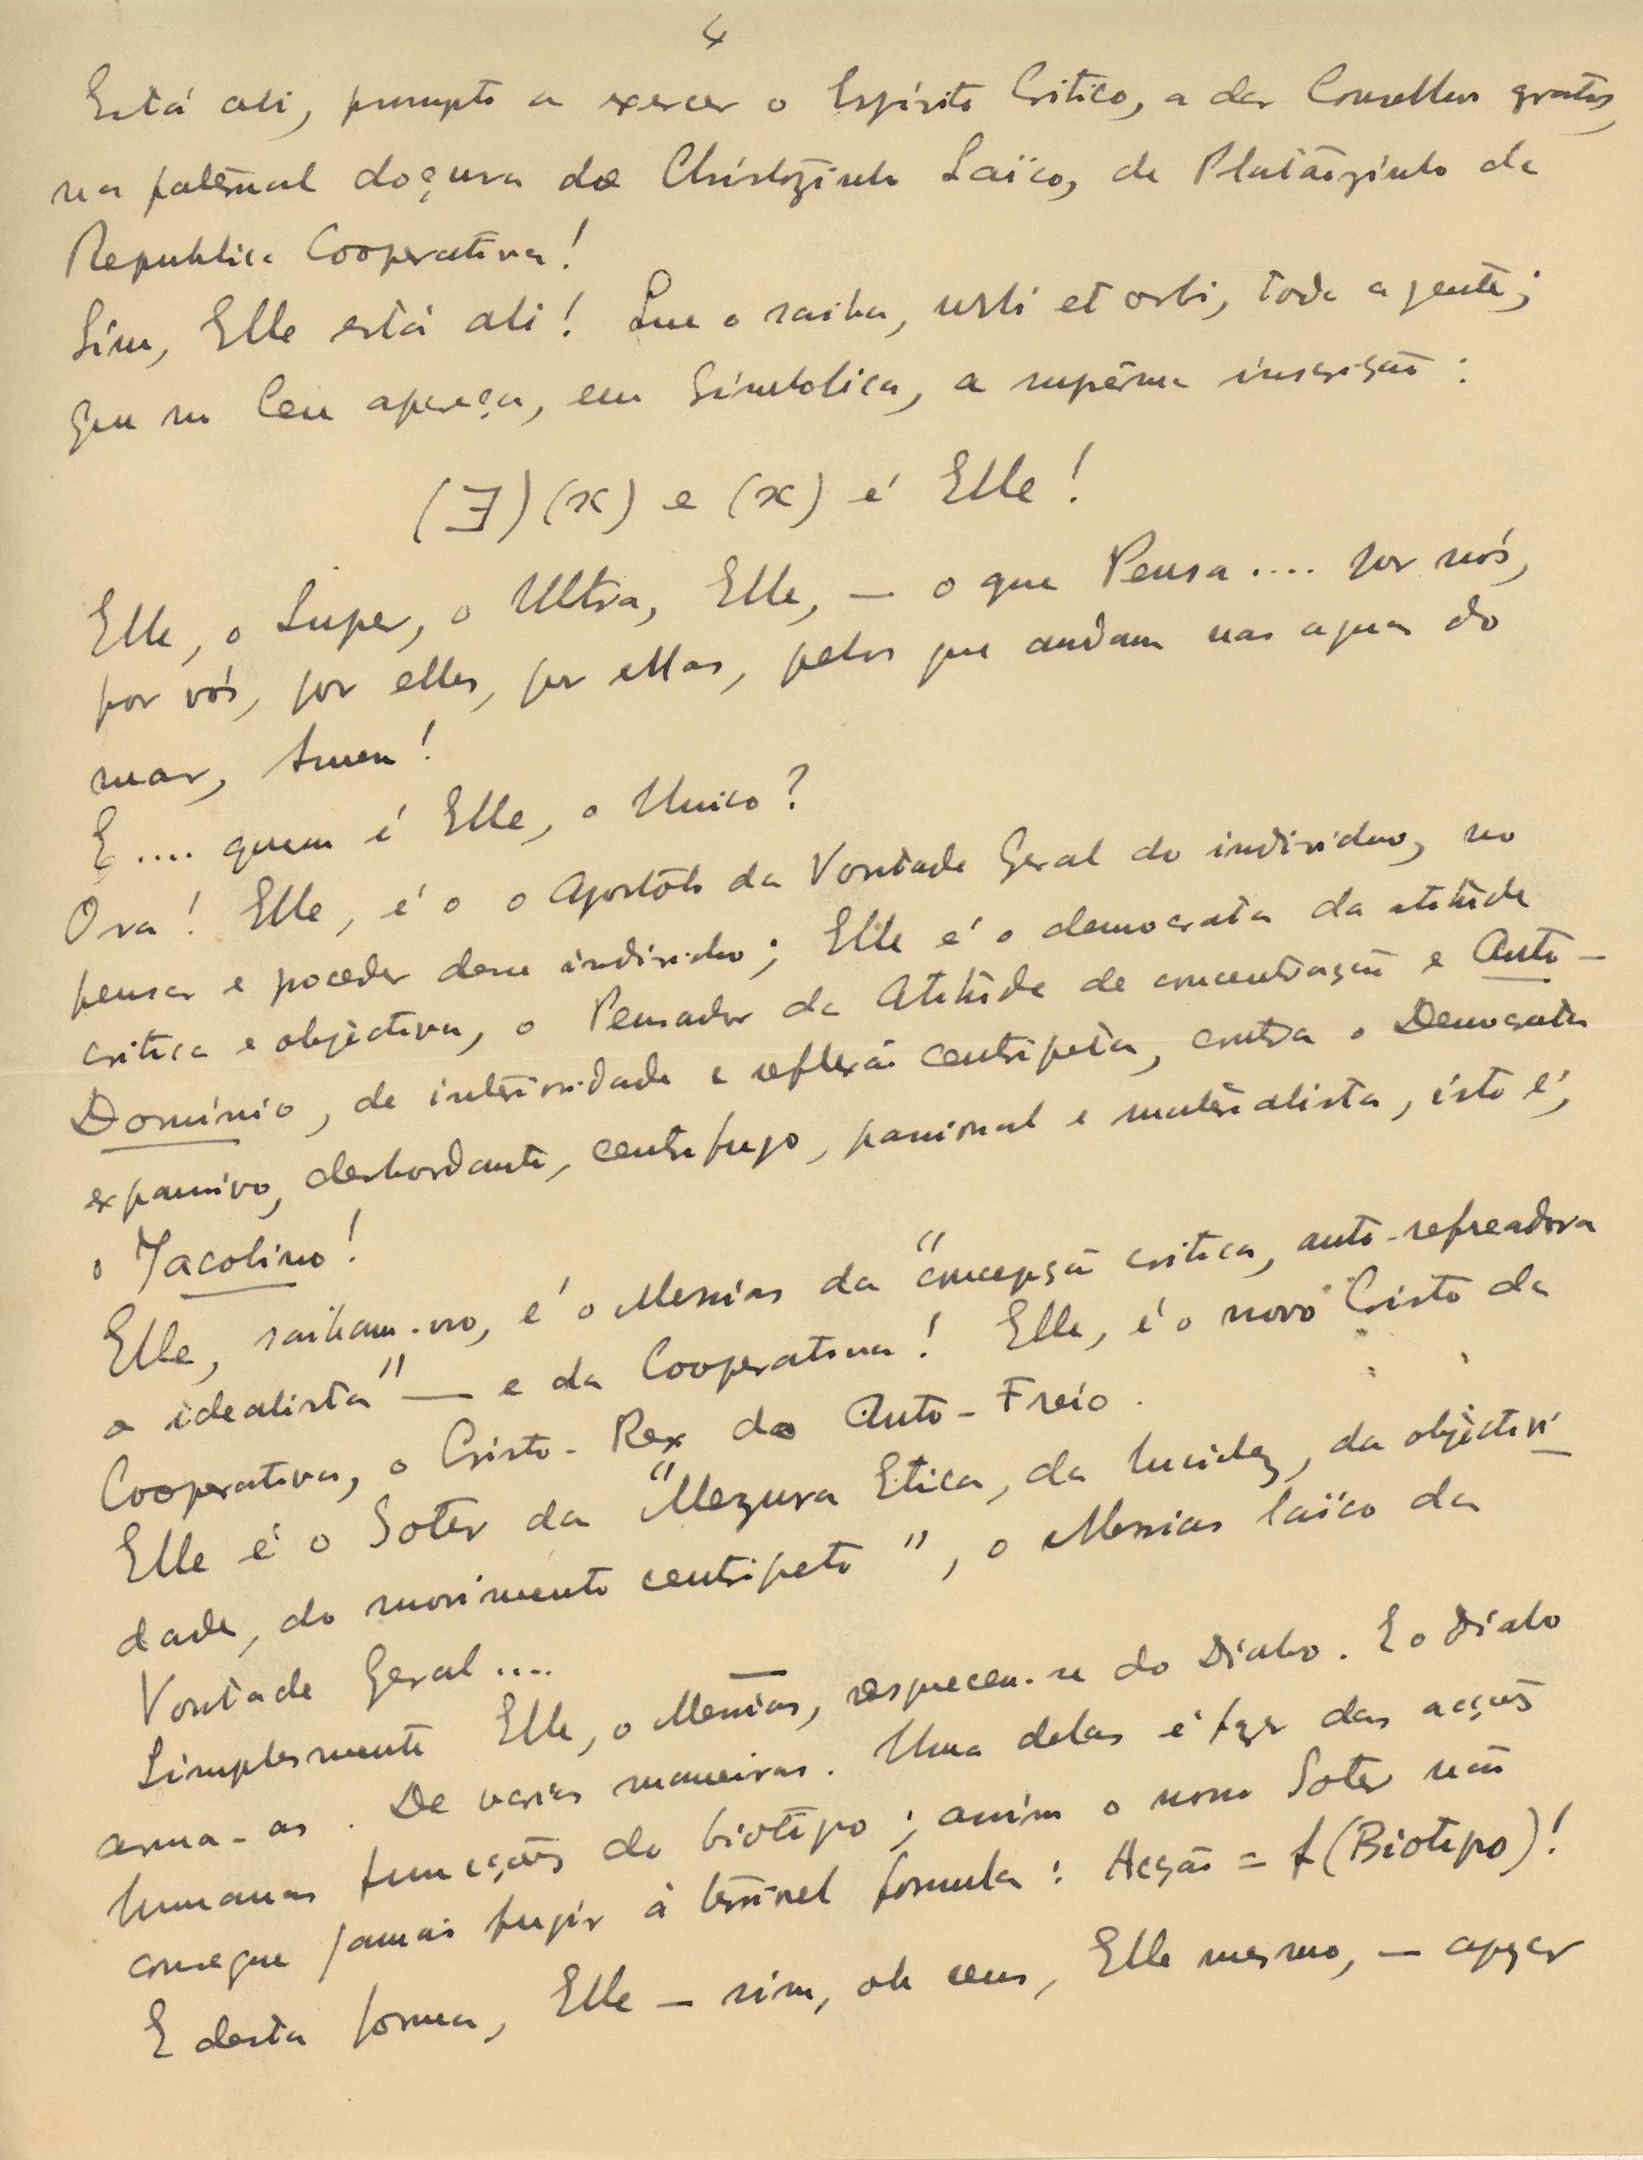 4
Está ali, prompto a exercer o Espirito Critico, a dar Conselhos gratos,
na paternal doçura do Christozinho Laïco, de Platãozinho da
Republica Cooperativa!
Sim, Elle está ali! Que o saiba, urbi et orbi, toda a gente;
que no Ceu apareça, em Simbolica, a suprêma inscrição:
(∃)(x) e (x) é Elle!
Elle, o Super, o Ultra, Elle, — o que Pensa.... por nós,
por vós, por elles, por ellas, pelos que andam nas aguas do
mar, Amen!
E.... quem é Elle, o Unico?
Ora! Elle, é o o Apostolo da Vontade Geral do individuo, no
pensar e proceder desse individuo; Elle é o democrata da atitude
critica e objectiva, o Pensador da Atitude de concentração e Auto-
Dominio, de interioridade e reflexão centripeta, contra o Democrata
expansivo, desbordante, centrifugo, passional e materialista, isto é,
o Jacobino!
Elle, saibam-no, é o Messias da "concepção critica, auto-refreadora
e idealista" — e da Cooperativa! Elle, é o novo Cristo da
Cooperativa, o Cristo-Rex do Auto-Freio.
Elle é o Soter da "Mezura Etica, da lucidez, da objectivi-
dade, do movimento centripeto", o Messias laïco da
Vontade Geral....
Simplesmente Elle, o Messias, esqueceu-se do Diabo. E o Diabo
arma-as. De varias maneiras. Uma delas é fazer das acções
humanas funcções do biotipo; assim o novo Soter não
consegue jamais fugir à terrivel formula: Acção = f(Biotipo)!
E desta forma, Elle — sim, oh ceus, Elle mesmo, — apezar